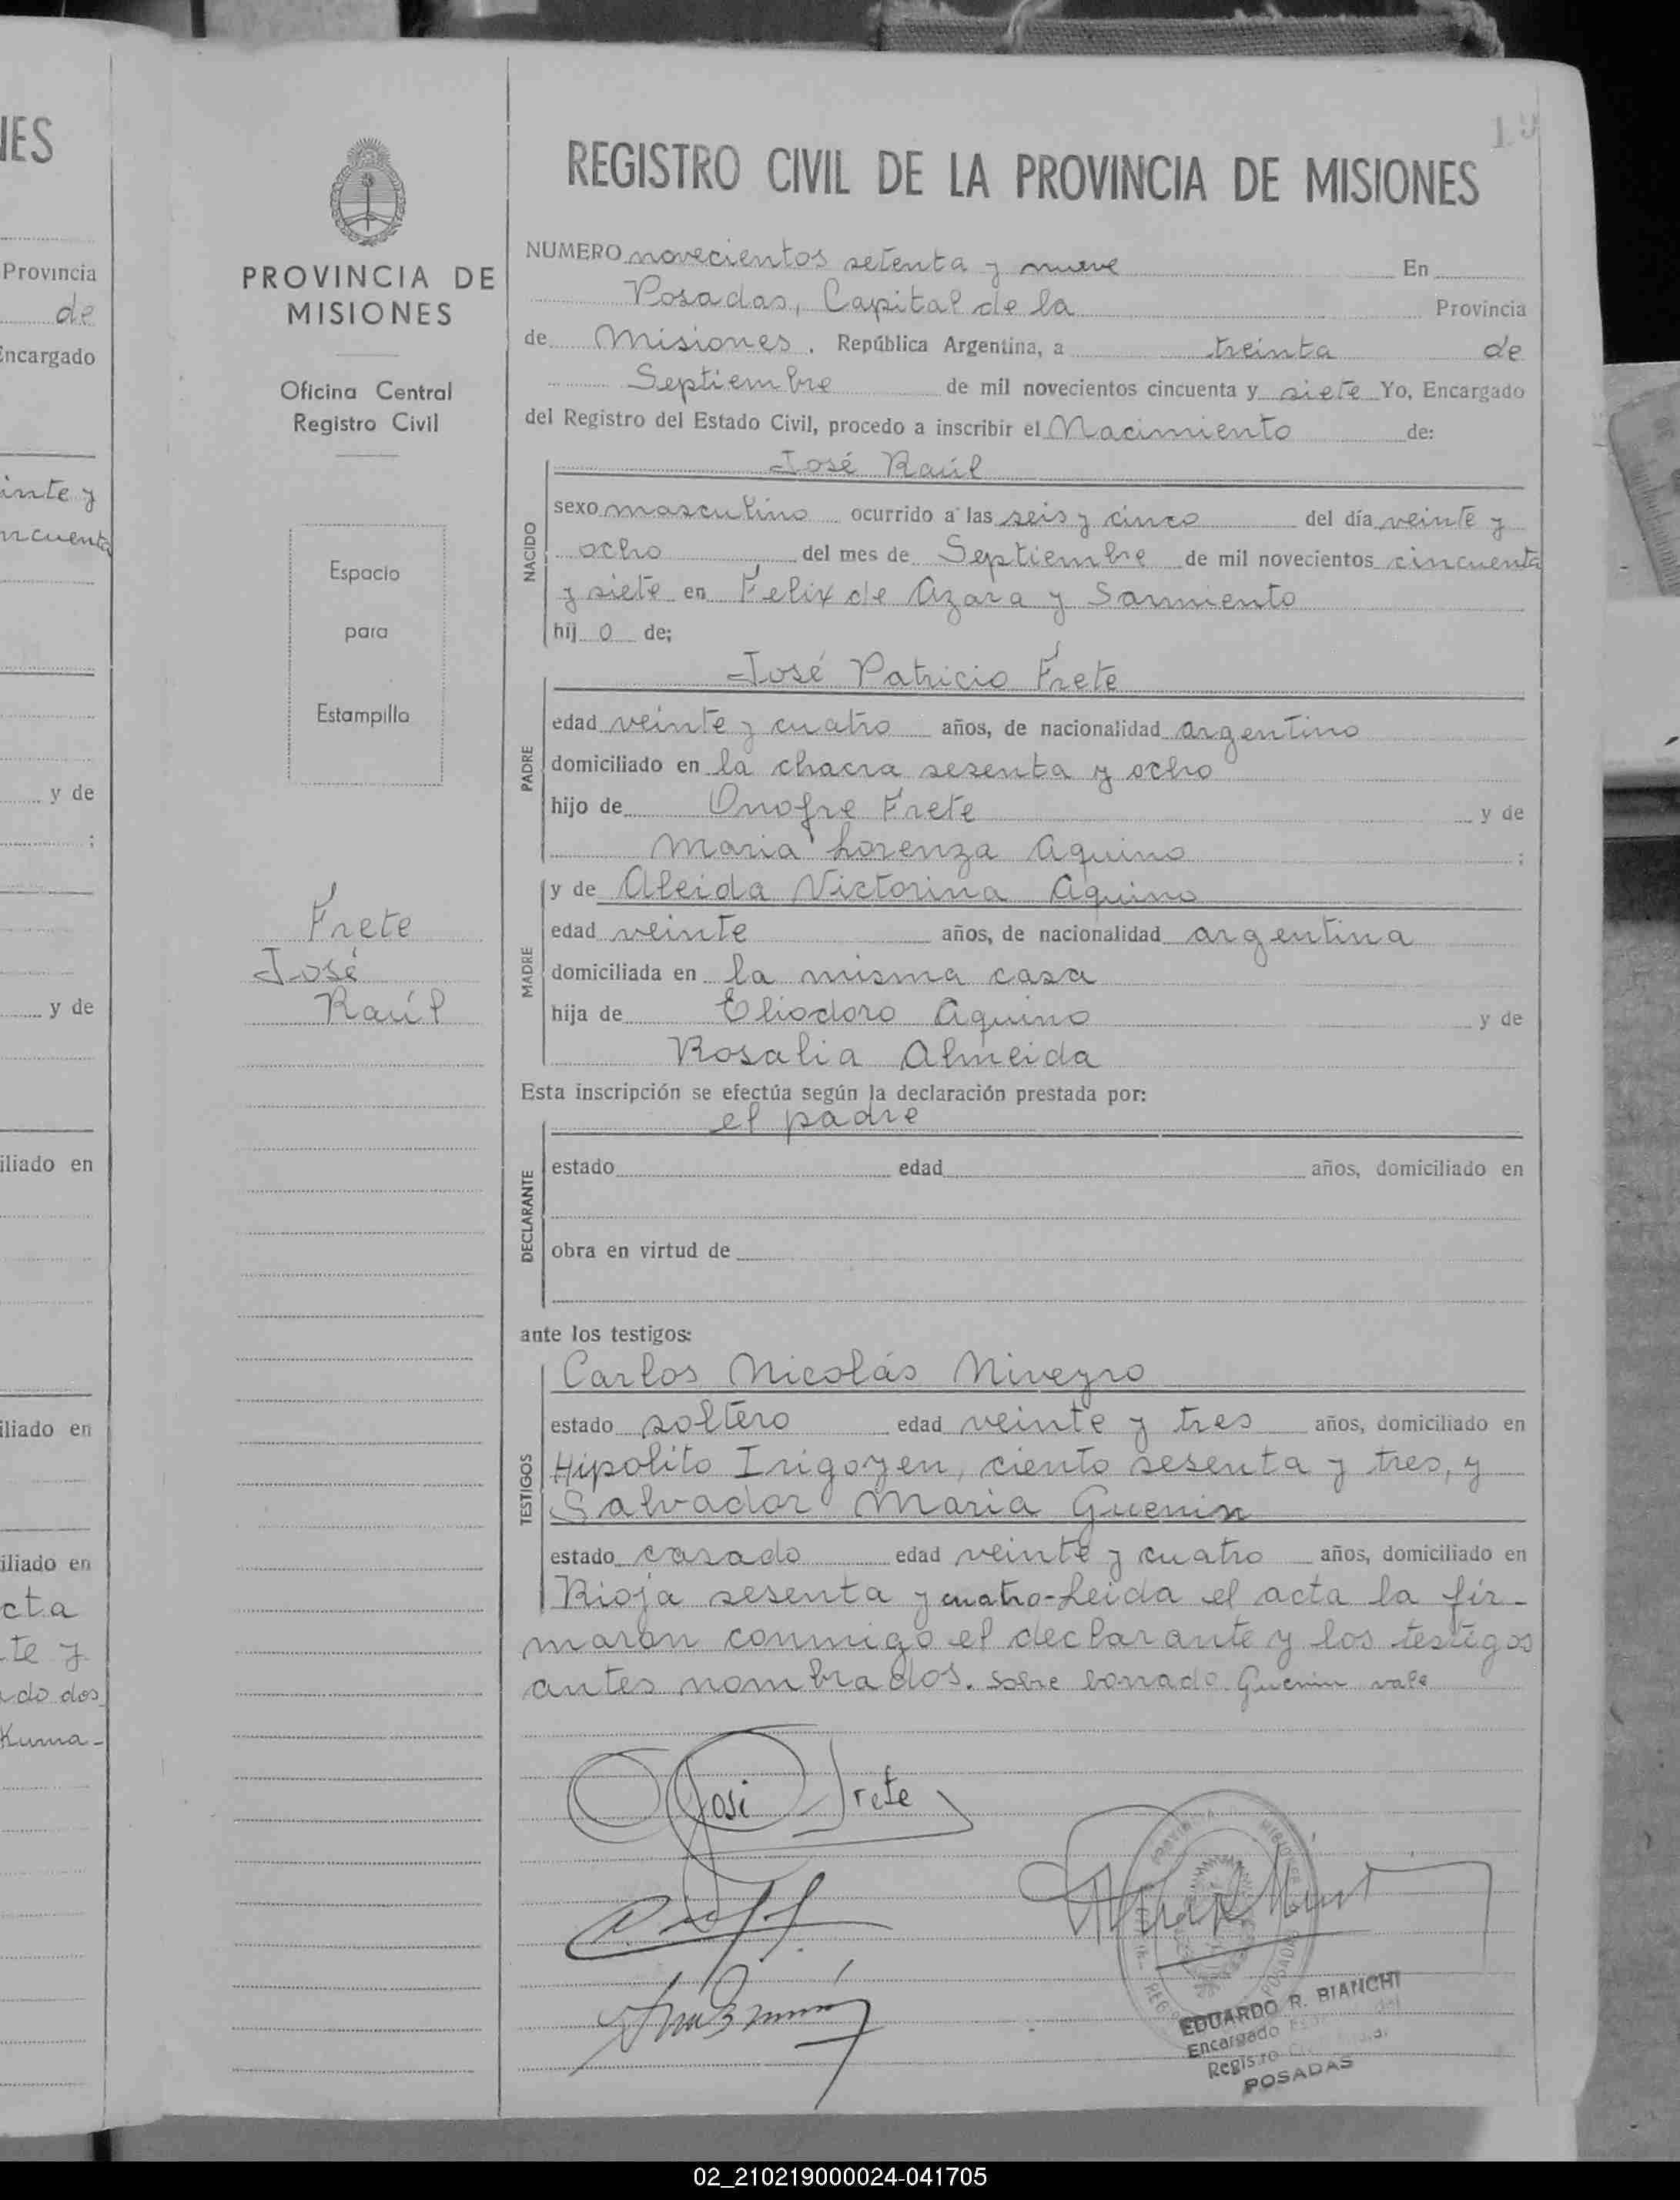 NES
Provincia
de
Encargado
inte y
ncuenta
y de
;
y de
iliado en
iliado en
iliado en
cta
te y
do dos
Kuma-
PROVINCIA DE
MISIONES
Oficina Central
Registro Civil
Espacio
para
Estampilla
Frete
José
Raúl
REGISTRO CIVIL DE LA PROVINCIA DE MISIONES
NUMERO novecientos setenta y nueve En
Posadas, Capital de la Provincia
de Misiones, República Argentina, a treinta de
Septiembre de mil novecientos cincuenta y siete Yo, Encargado
del Registro del Estado Civil, procedo a inscribir el Nacimiento de:
José Raúl
NACIDO
sexo masculino ocurrido a las seis y cinco del día veinte y
ocho del mes de Septiembre de mil novecientos cincuenta
y siete en Felix de Azara y Sarmiento
hij o de;
José Patricio Frete
PADRE
edad veinte y cuatro años, de nacionalidad argentino
domiciliado en la chacra sesenta y ocho
hijo de Onofre Frete y de
Maria Lorenza Aquino ;
y de Aleida Victorina Aquino
MADRE
edad veinte años, de nacionalidad argentina
domiciliada en la misma casa
hija de Eliodoro Aquino y de
Rosalia Almeida
Esta inscripción se efectúa según la declaración prestada por:
el padre
DECLARANTE
estado edad años, domiciliado en
obra en virtud de
ante los testigos:
Carlos Nicolás Niveyro
TESTIGOS
estado soltero edad veinte y tres años, domiciliado en
Hipolito Irigoyen, ciento sesenta y tres, y
Salvador Maria Guenin
estado casado edad veinte y cuatro años, domiciliado en
Rioja sesenta y cuatro-Leida el acta la fir-
maron conmigo el declarante y los testigos
antes nombrados. Sobre borrado Guenin vale
José Frete
EDUARDO R. BIANCHI
Encargado
Registro
POSADAS
02_210219000024-041705